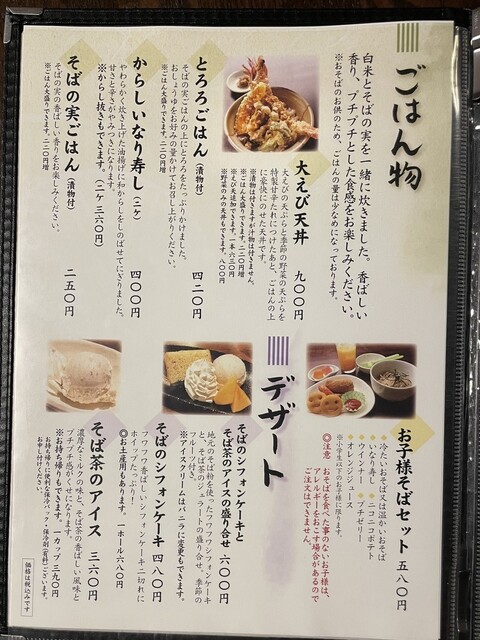 ごはん物
白米とそばの実を一緒に炊きました。香ばしい
香り、プチプチとした食感をお楽しみください。
※おそばのお供のため、ごはんの量は少なめになっております。
大えび天丼 九〇〇
大えびの天ぷらと季節の野菜の天ぷらを
特製甘辛たれにつけたあと、ごはんの上
に豪快にのせた天丼です。
※漬物は付きますが汁物は付きません。
※ごはん大盛りできます。二二〇円増
※えび天追加できます。一本 六三〇円
※野菜のみの天丼もできます。八〇〇円
とろろごはん(漬物付) 四二〇
そばの実ごはんの上にとろろをたっぷりかけました。
おしょうゆをお好みの量かけてお召し上がりください。
※ごはん大盛りできます。二二〇円増
からしいなり寿し(二ケ) 四〇〇
やわらかく炊き上げた油揚げに和からしをしのばせてにぎりました。
甘さと辛さがやみつきになります。
※からし抜きもできます。(二ケ 三六〇円)
そばの実ごはん(漬物付) 二五〇円
そばの実の香ばしい香りをお楽しみください。
※ごはん大盛りできます。二二〇円増
お子様そばセット 五八〇円
冷たいおそば又は温かいおそば
いなり寿し ニコニコポテト
ウインナー プチゼリー
オレンジジュース
※小学生以下のお子様に限ります。
◎注意 おそばを食べた事のないお子様は、
アレルギーをおこす場合があるので
ご注文はできません。
デザート
そばのシフォンケーキと
そば茶のアイスの盛り合せ 六〇〇円
地元のそば粉を使ったフワフワシフォンケーキ
と、そば茶のジェラートの盛り合せ。季節の
フルーツ付き。
※アイスクリームはバニラに変更もできます。
そばのシフォンケーキ 四八〇
フワフワ香ばしいシフォンケーキ二切れに
ホイップたっぷり!
◎お土産用もあります。一ホール 六八〇円
そば茶のアイス 三六〇円
濃厚なミルクの味と、そば茶の香ばしい風味と
プチプチ感がくせになります。
※お持ち帰りもできます。一カップ 三九〇円
お持ち帰りに便利な保冷パック・保冷剤(有料)ございます。
お申し付けください。
価格は税込みです